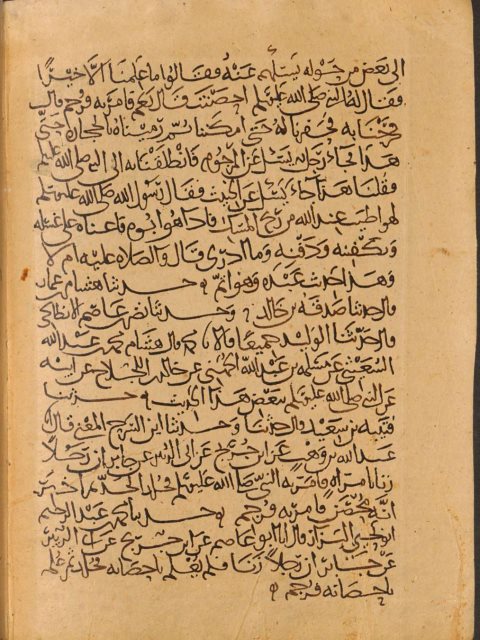 الى بعض من حوله يسئلهم عنه فقالوا ما علمنا الا خيرا
فقال له النبي صلى الله عليه وسلم احصنت قال نعم فامر به فرجم قال
فخرجنا به فحفرنا له حتى امكننا ثم رميناه بالحجارة حتى
هدا فجاء رجل يسئل عن المرجوم فانطلقنا به الى النبي صلى الله عليه
فقلنا هذا جاء يسئل عن الخبيث فقال رسول الله صلى الله عليه وسلم
لهو اطيب عند الله من ريح المسك فاذا هو ابوه فاعناه على غسله
وتكفينه ودفنه وما ادري قال والصلاة عليه ام لا
وهذا حديث عبدة وهو اتم حدثنا هشام بن عمار
قال حدثنا صدقة بن خالد وحدثنا نصر بن عاصم الانطاكي
قال حدثنا الوليد جميعا قالا محمد قال هشام محمد بن عبد الله
الشعيثي عن مسلمة بن عبد الله الجهني عن خالد بن اللجلاج عن ابيه
عن النبي صلى الله عليه وسلم ببعض هذا الحديث حدثنا
قتيبة بن سعيد قال حدثنا وحدثنا ابن السرح المعنى قال
عبد الله بن وهب عن ابن جريج عن ابي الزبير عن جابر ان رجلا
زنا بامراة فامر به النبي صلى الله عليه وسلم فجلد الحد ثم اخبر
انه محصن فامر به فرجم حدثنا محمد بن عبد الرحيم
ابو يحيى البزاز قال انا ابو عاصم عن ابن جريج عن ابي الزبير
عن جابر ان رجلا زنا فلم يعلم باحصانه فجلد ثم علم
باحصانه فرجم